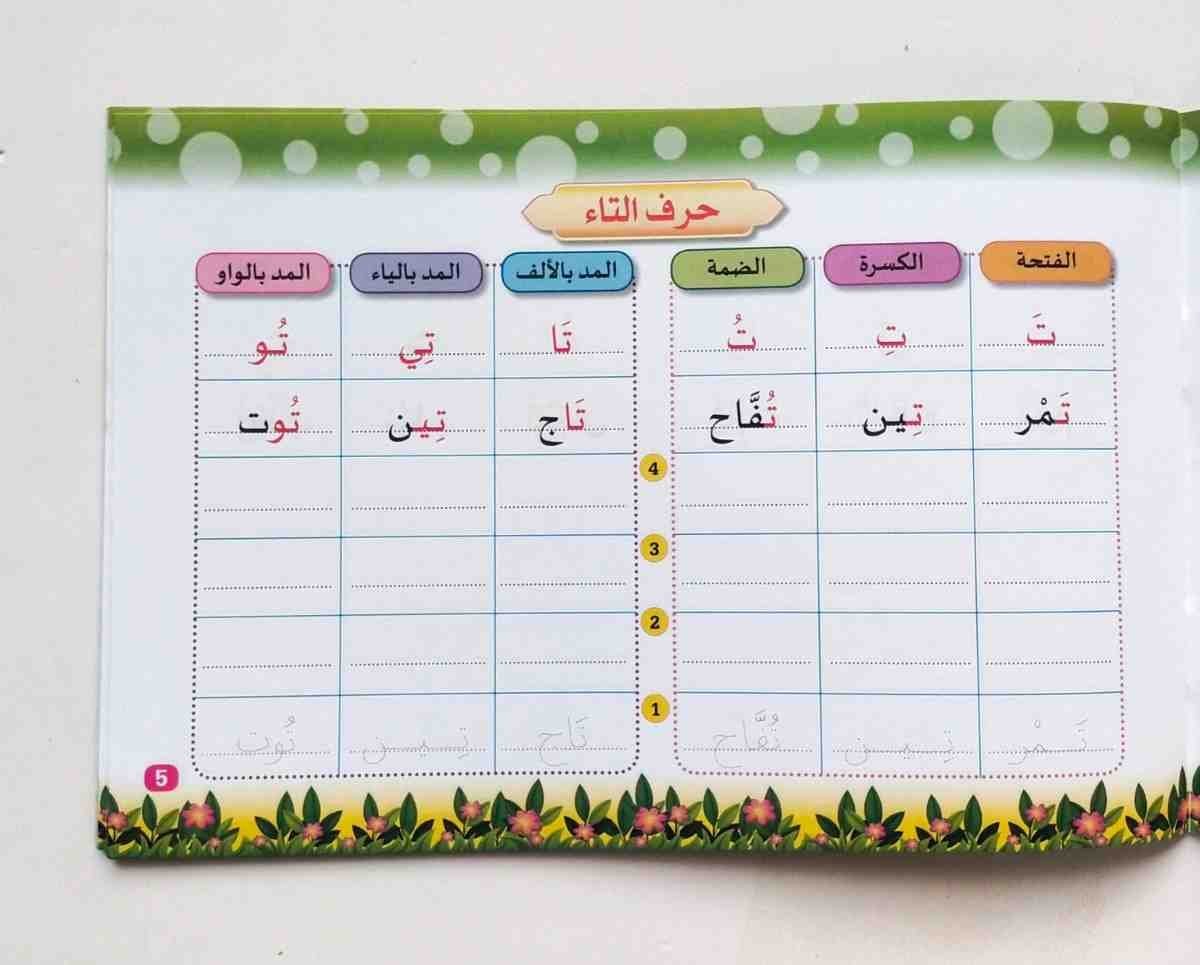 حرف التاء
الفتحة الكسرة الضمة المد بالألف المد بالياء المد بالواو
تَ تِ تُ تَا تِي تُـو
تَمْر تِين تُفَّاح تَاج تِين تُوت
4
3
2
1
تَـمْر تِـيـن تُفَّاح تَاج تِـيـن تُوت
5